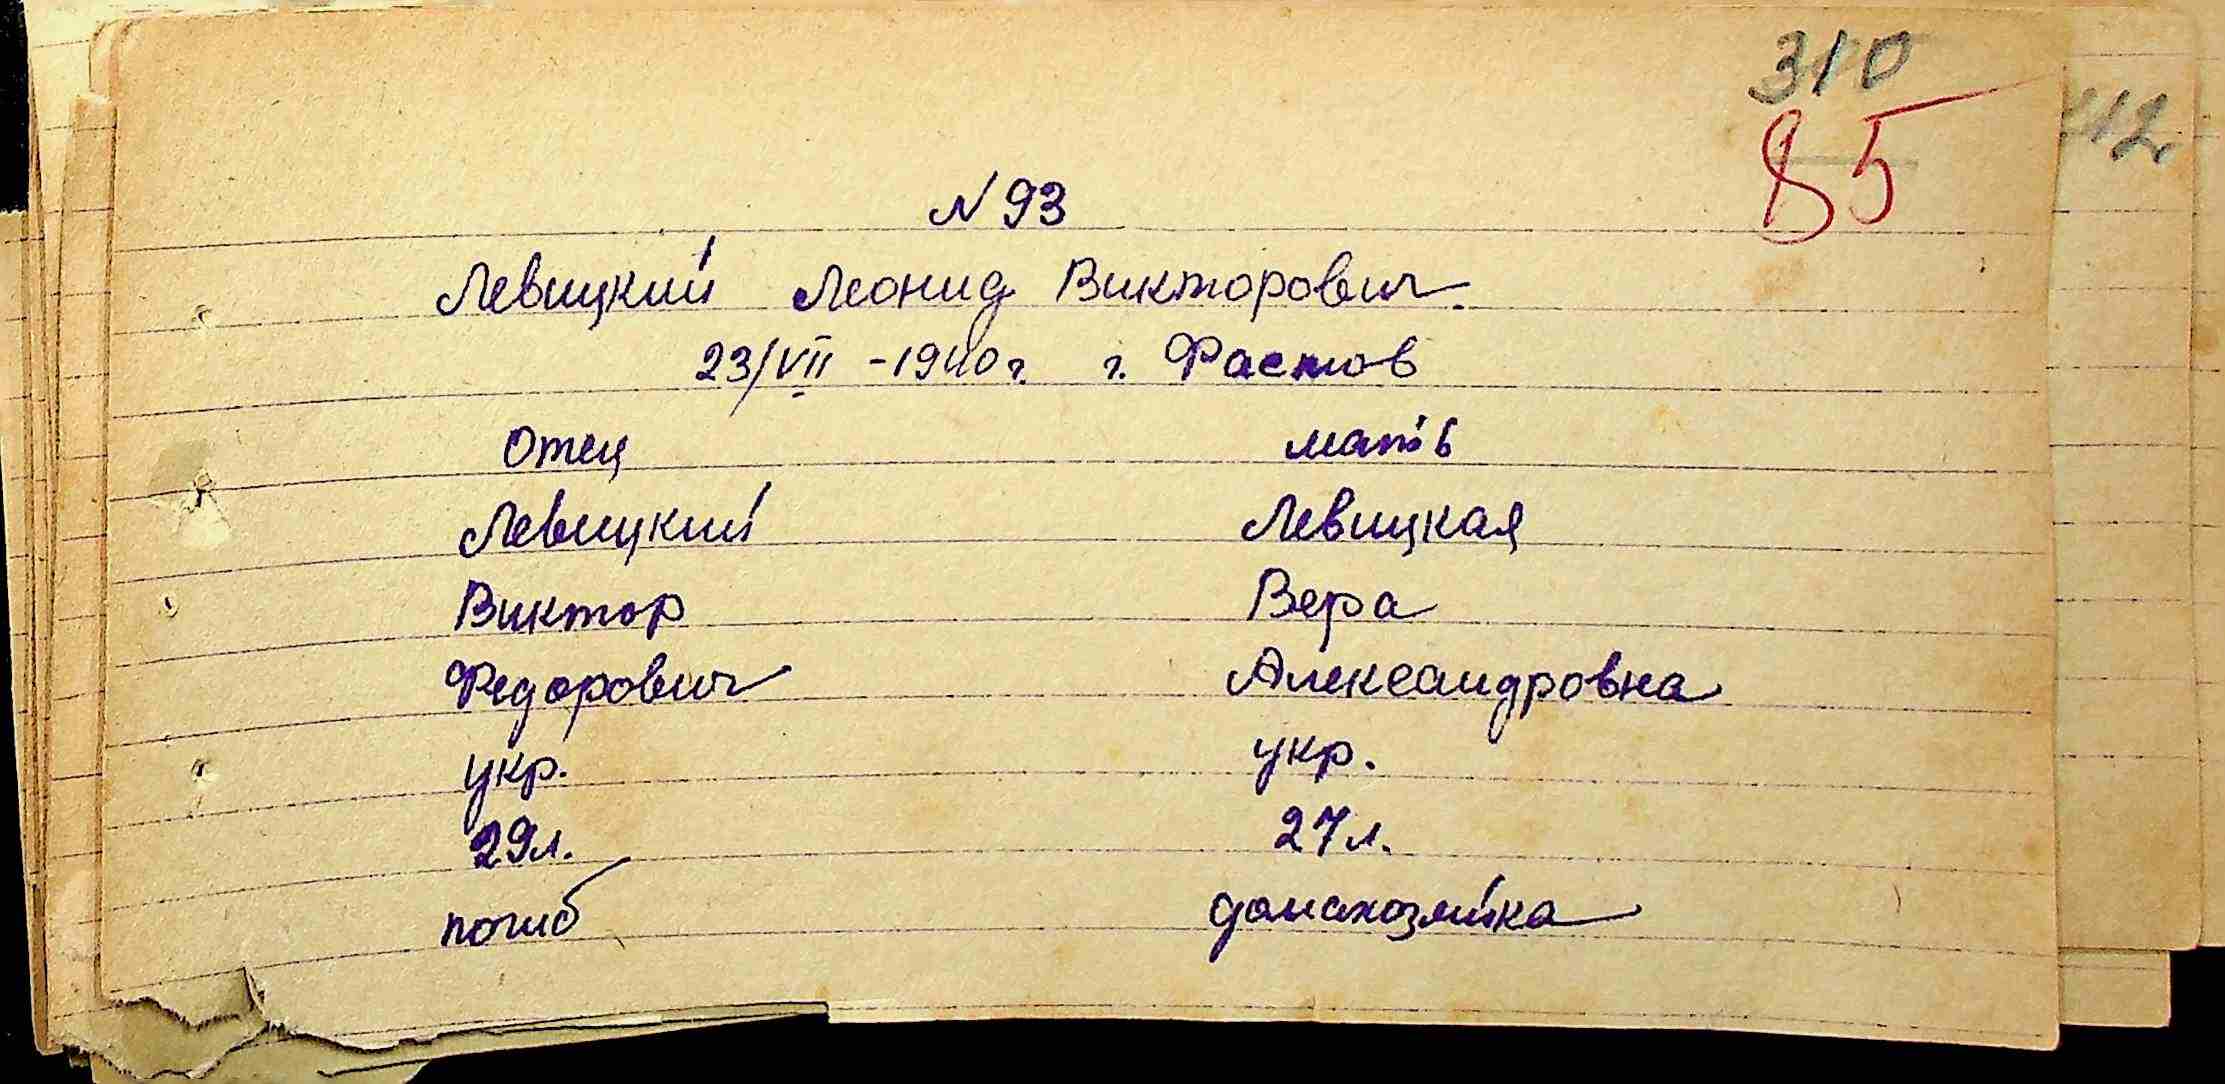 310
85
112
№ 93
Левицкий Леонид Викторович.
23/VII -1940г. г. Фастов
Отец мать
Левицкий Левицкая
Виктор Вера
Федорович Александровна
укр. укр.
29л. 27л.
погиб домахозяйка